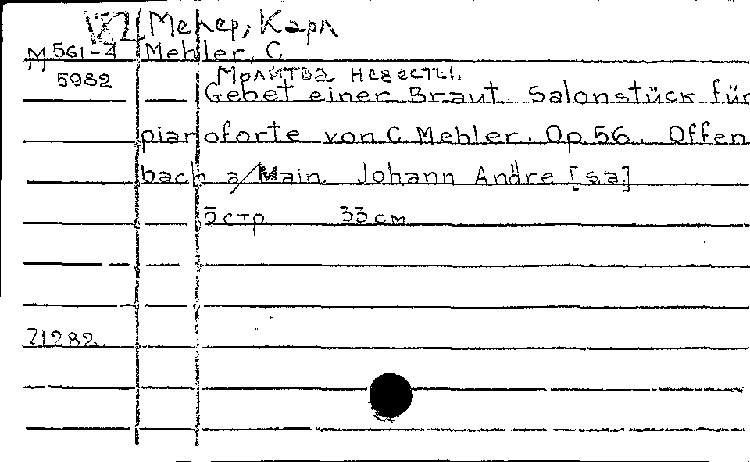 Мелер, Карл
М 561-4 Mehler, C.
5982 Молитва невесты.
Gebet einer Braut. Salonstück für
pianoforte von C. Mehler. Op. 56. Offen
bach a/Main. Johann Andre [s.a.]
5 стр 33 см
71282